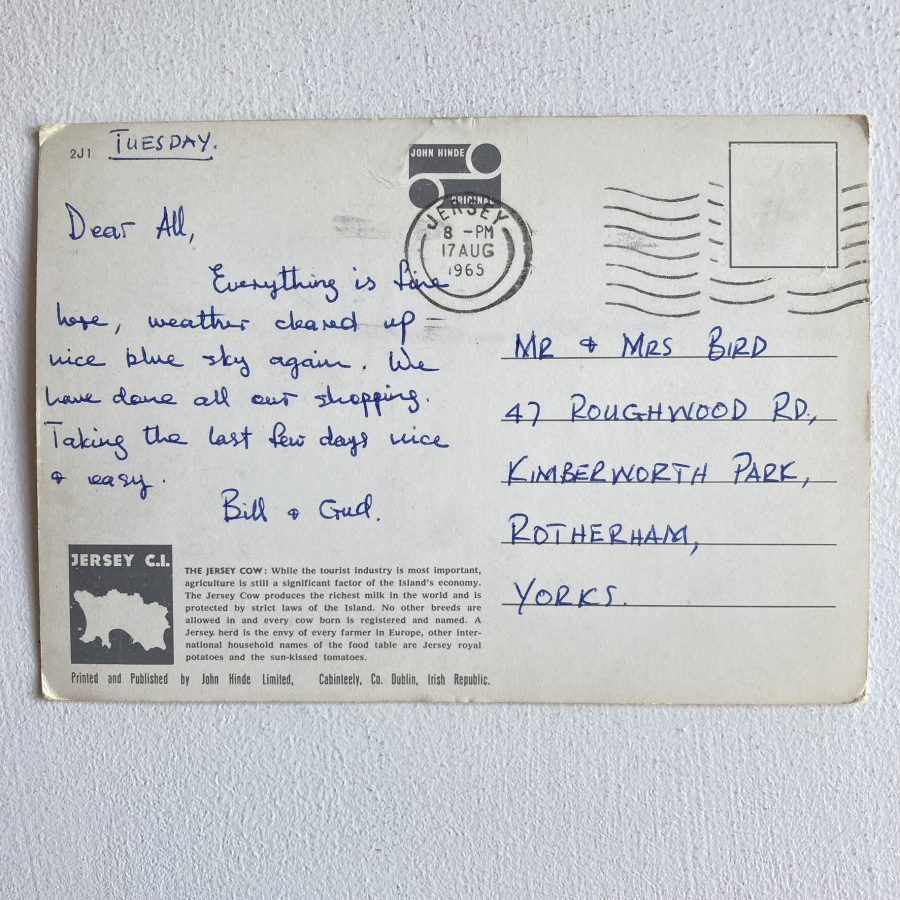 2J1
TUESDAY.
JOHN HINDE
ORIGINAL
JERSEY
8 - PM
17 AUG
1965
Dear All,
Everything is fine
here, weather cleared up –
nice blue sky again. We
have done all our shopping.
Taking the last few days nice
& easy.
Bill & Gud.
MR & MRS BIRD
47 ROUGHWOOD RD,
KIMBERWORTH PARK,
ROTHERHAM,
YORKS.
JERSEY C.I.
THE JERSEY COW: While the tourist industry is most important,
agriculture is still a significant factor of the Island's economy.
The Jersey Cow produces the richest milk in the world and is
protected by strict laws of the Island. No other breeds are
allowed in and every cow born is registered and named. A
Jersey herd is the envy of every farmer in Europe, other inter-
national household names of the food table are Jersey royal
potatoes and the sun-kissed tomatoes.
Printed and Published by John Hinde Limited, Cabinteely, Co. Dublin, Irish Republic.